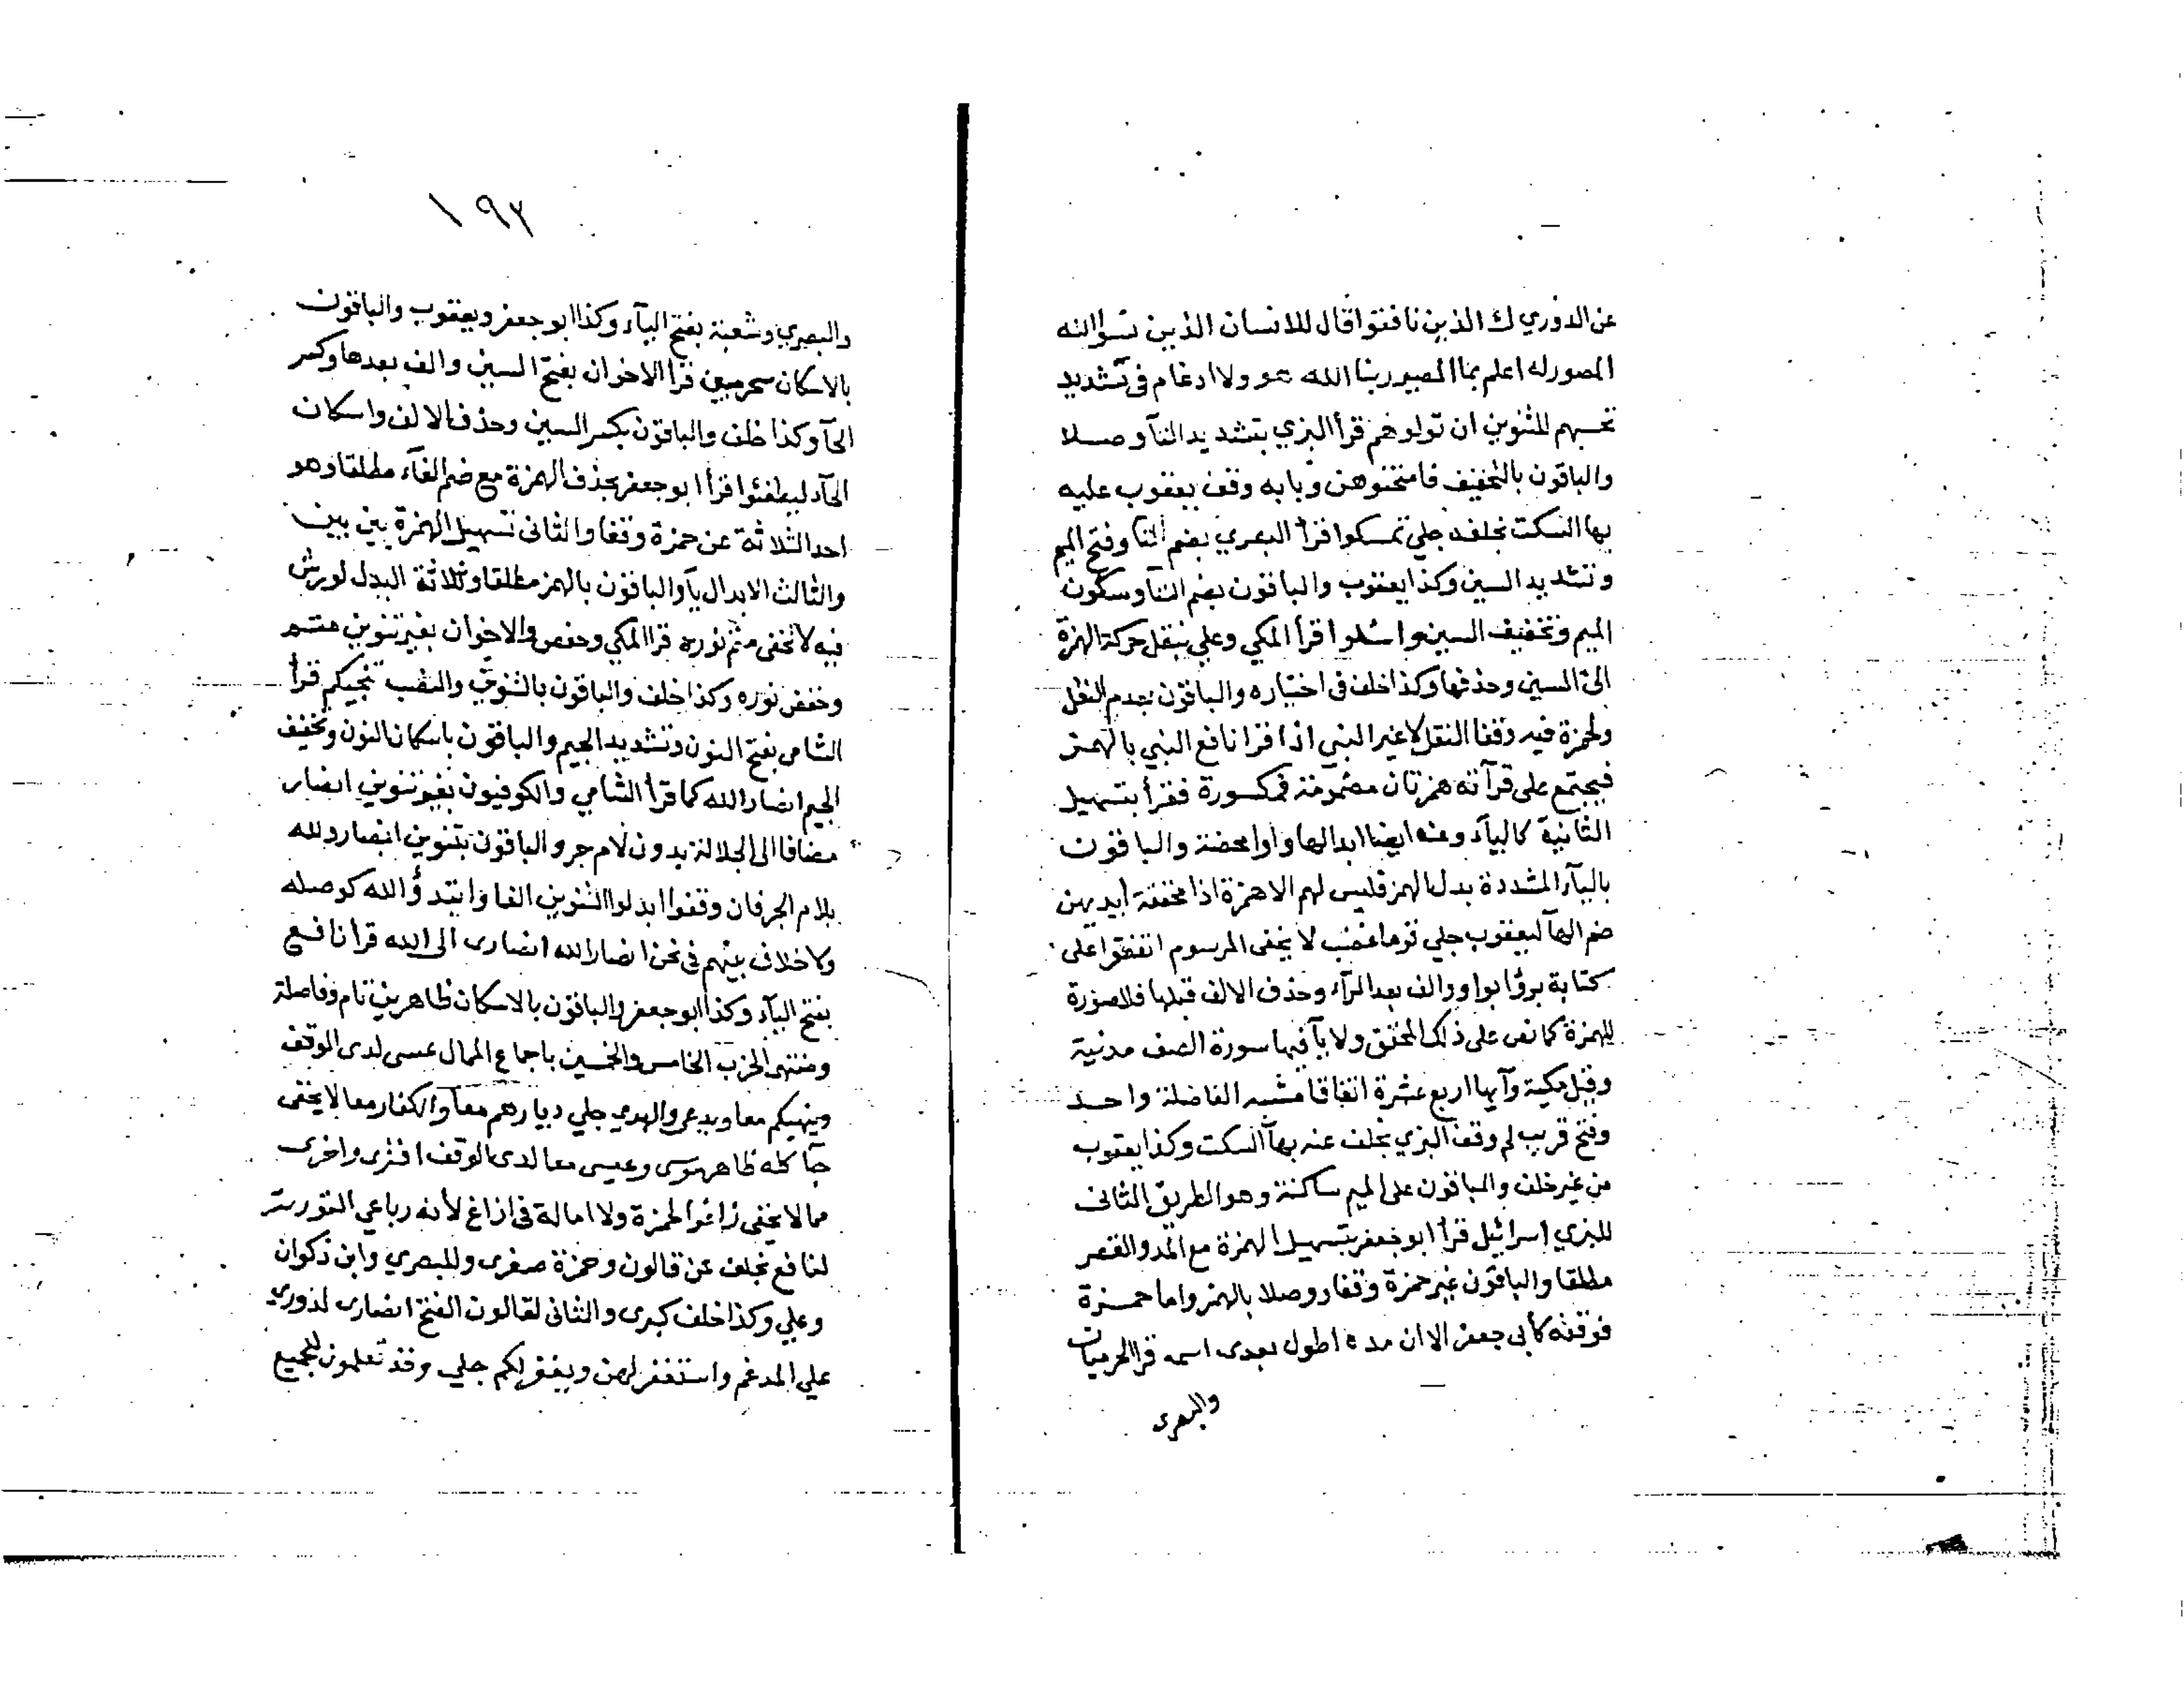 عن الدوري ك الذين نافقوا قال للانسان الذين نسوا الله
المصور له اعلم بما المصير ربنا الله هو ولا ادغام في تشديد
تحسبهم للتنوين ان تولوهم قرأ البزي بتشديد التآ وصلا
والباقون بالتخفيف فامتحنوهن وبابه وقف يعقوب عليه
بها السكت بخلف جلي تمسكوا قرأ البصري بضم التا وفتح الميم
وتشديد السين وكذا يعقوب والباقون بضم التآ وسكون
الميم وتخفيف السين واسئلوا قرأ المكي وعلي بنقل حركة الهمزة
الى السين وحذفها وكذا خلف في اختياره والباقون بعدم النقل
ولحمزة فيه وقفا النقل لا غير النبي اذا قرا نافع النبي بالهمز
فيجتمع على قرآته همزتان مضمومة فمكسورة فقرأ بتسهيل
الثانية كاليآء وعنه ايضا ابدالها واوا محضة والباقون
باليآء المشددة بدل الهمز فليس لهم الا همزة اذا مخففة أيديهن
ضم الهآ ليعقوب جلي قوما غضب لا يخفى المرسوم اتفقوا على
كتابة برؤا بواو والف بعد الرآء وحذف الالف قبلها فلا صورة
للهمزة كما نص على ذلك المحقق ولا يآ فيها سورة الصف مدنية
وقيل مكية وآيها اربع عشرة اتفاقا مشبه الفاصلة واحد
وفتح قريب لم وقف البزي بخلف عنه بهآ السكت وكذا يعقوب
من غير خلف والباقون على الميم ساكنة وهو الطريق الثاني
للبزي إسرائيل قرأ ابو جعفر بتسهيل الهمزة مع المد والقصر
مطلقا والباقون غير حمزة وقفا ووصلا بالهمز واما حمزة
فوقفه كأبى جعفر الا ان مده اطول بعدى اسمه قرا الحرميان
والبصرى
١٩٢
والبصري وشعبة بفتح اليآء وكذا ابو جعفر ويعقوب والباقون
بالاسكان سحر مبين قرأ الاخوان بفتح السين والف بعدها وكسر
الحآ وكذا خلف والباقون بكسر السين وحذف الالف واسكان
الحآء ليطفئوا قرأ ابو جعفر بحذف الهمزة مع ضم الفآء مطلقا وهو
احد الثلاثة عن حمزة وقفا والثانى تسهيل الهمزة بين بين
والثالث الابدال يآ والباقون بالهمز مطلقا وثلاثة البدل لورش
فيه لا تخفى متم نوره قرا المكي وحفص والاخوان بغير تنوين متم
وخفض نوره وكذا خلف والباقون بالتنوين والنصب تنجيكم قرأ
الشامى بفتح النون وتشديد الجيم والباقون باسكان النون وتخفيف
الجيم انصار الله كما قرأ الشامي والكوفيون بغير تنوين انصار
مضافا الى الجلالة بدون لام جر والباقون بتنوين انصار ولله
بلام الجر فان وقفوا ابدلوا التنوين الفا وابتدؤ الله كوصله
ولا خلاف بينهم في نحن انصار الله انصارى الى الله قرا نافع
بفتح اليآء وكذا ابو جعفر والباقون بالاسكان ظاهرين تام وفاصلة
ومنتهى الحزب الخامس والخمسين باجماع الممال عسى لدى الوقف
وينهيكم معا ويدعى والهدى جلي ديارهم معا والكفار معا لا يخفى
جآ كله ظاهر موسى وعيسى معا لدى الوقف افترى واخرى
مما لا يخفى زاغوا لحمزة ولا امالة في ازاغ لأنه رباعي التورىة
لنافع بخلف عن قالون وحمزة صغرى وللبصري وابن ذكوان
وعلي وكذا خلف كبرى والثانى لقالون الفتح انصارى لدوري
علي المدغم واستغفر لهن ويغفر لكم جلي وقد تعلمون للجميع